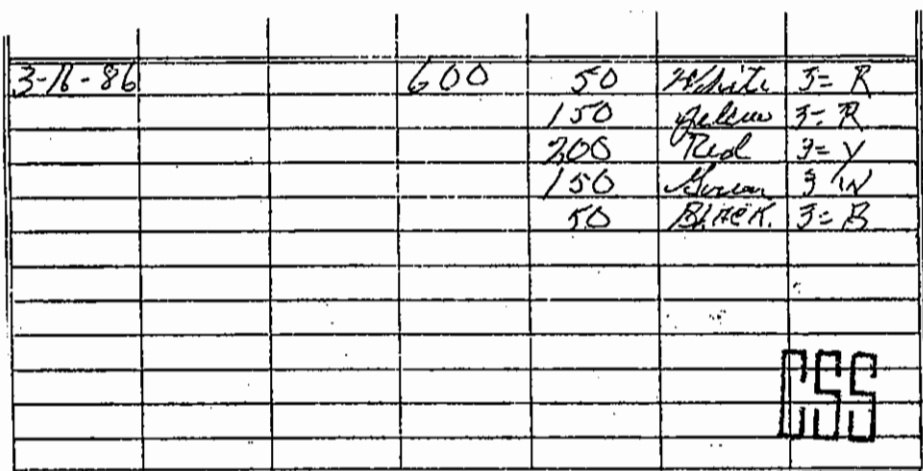 3-11-86 600 50 White 3= R
150 Yellow 3= R
200 Red 3= Y
150 Green 3 W
50 BLACK. 3= B
CSS